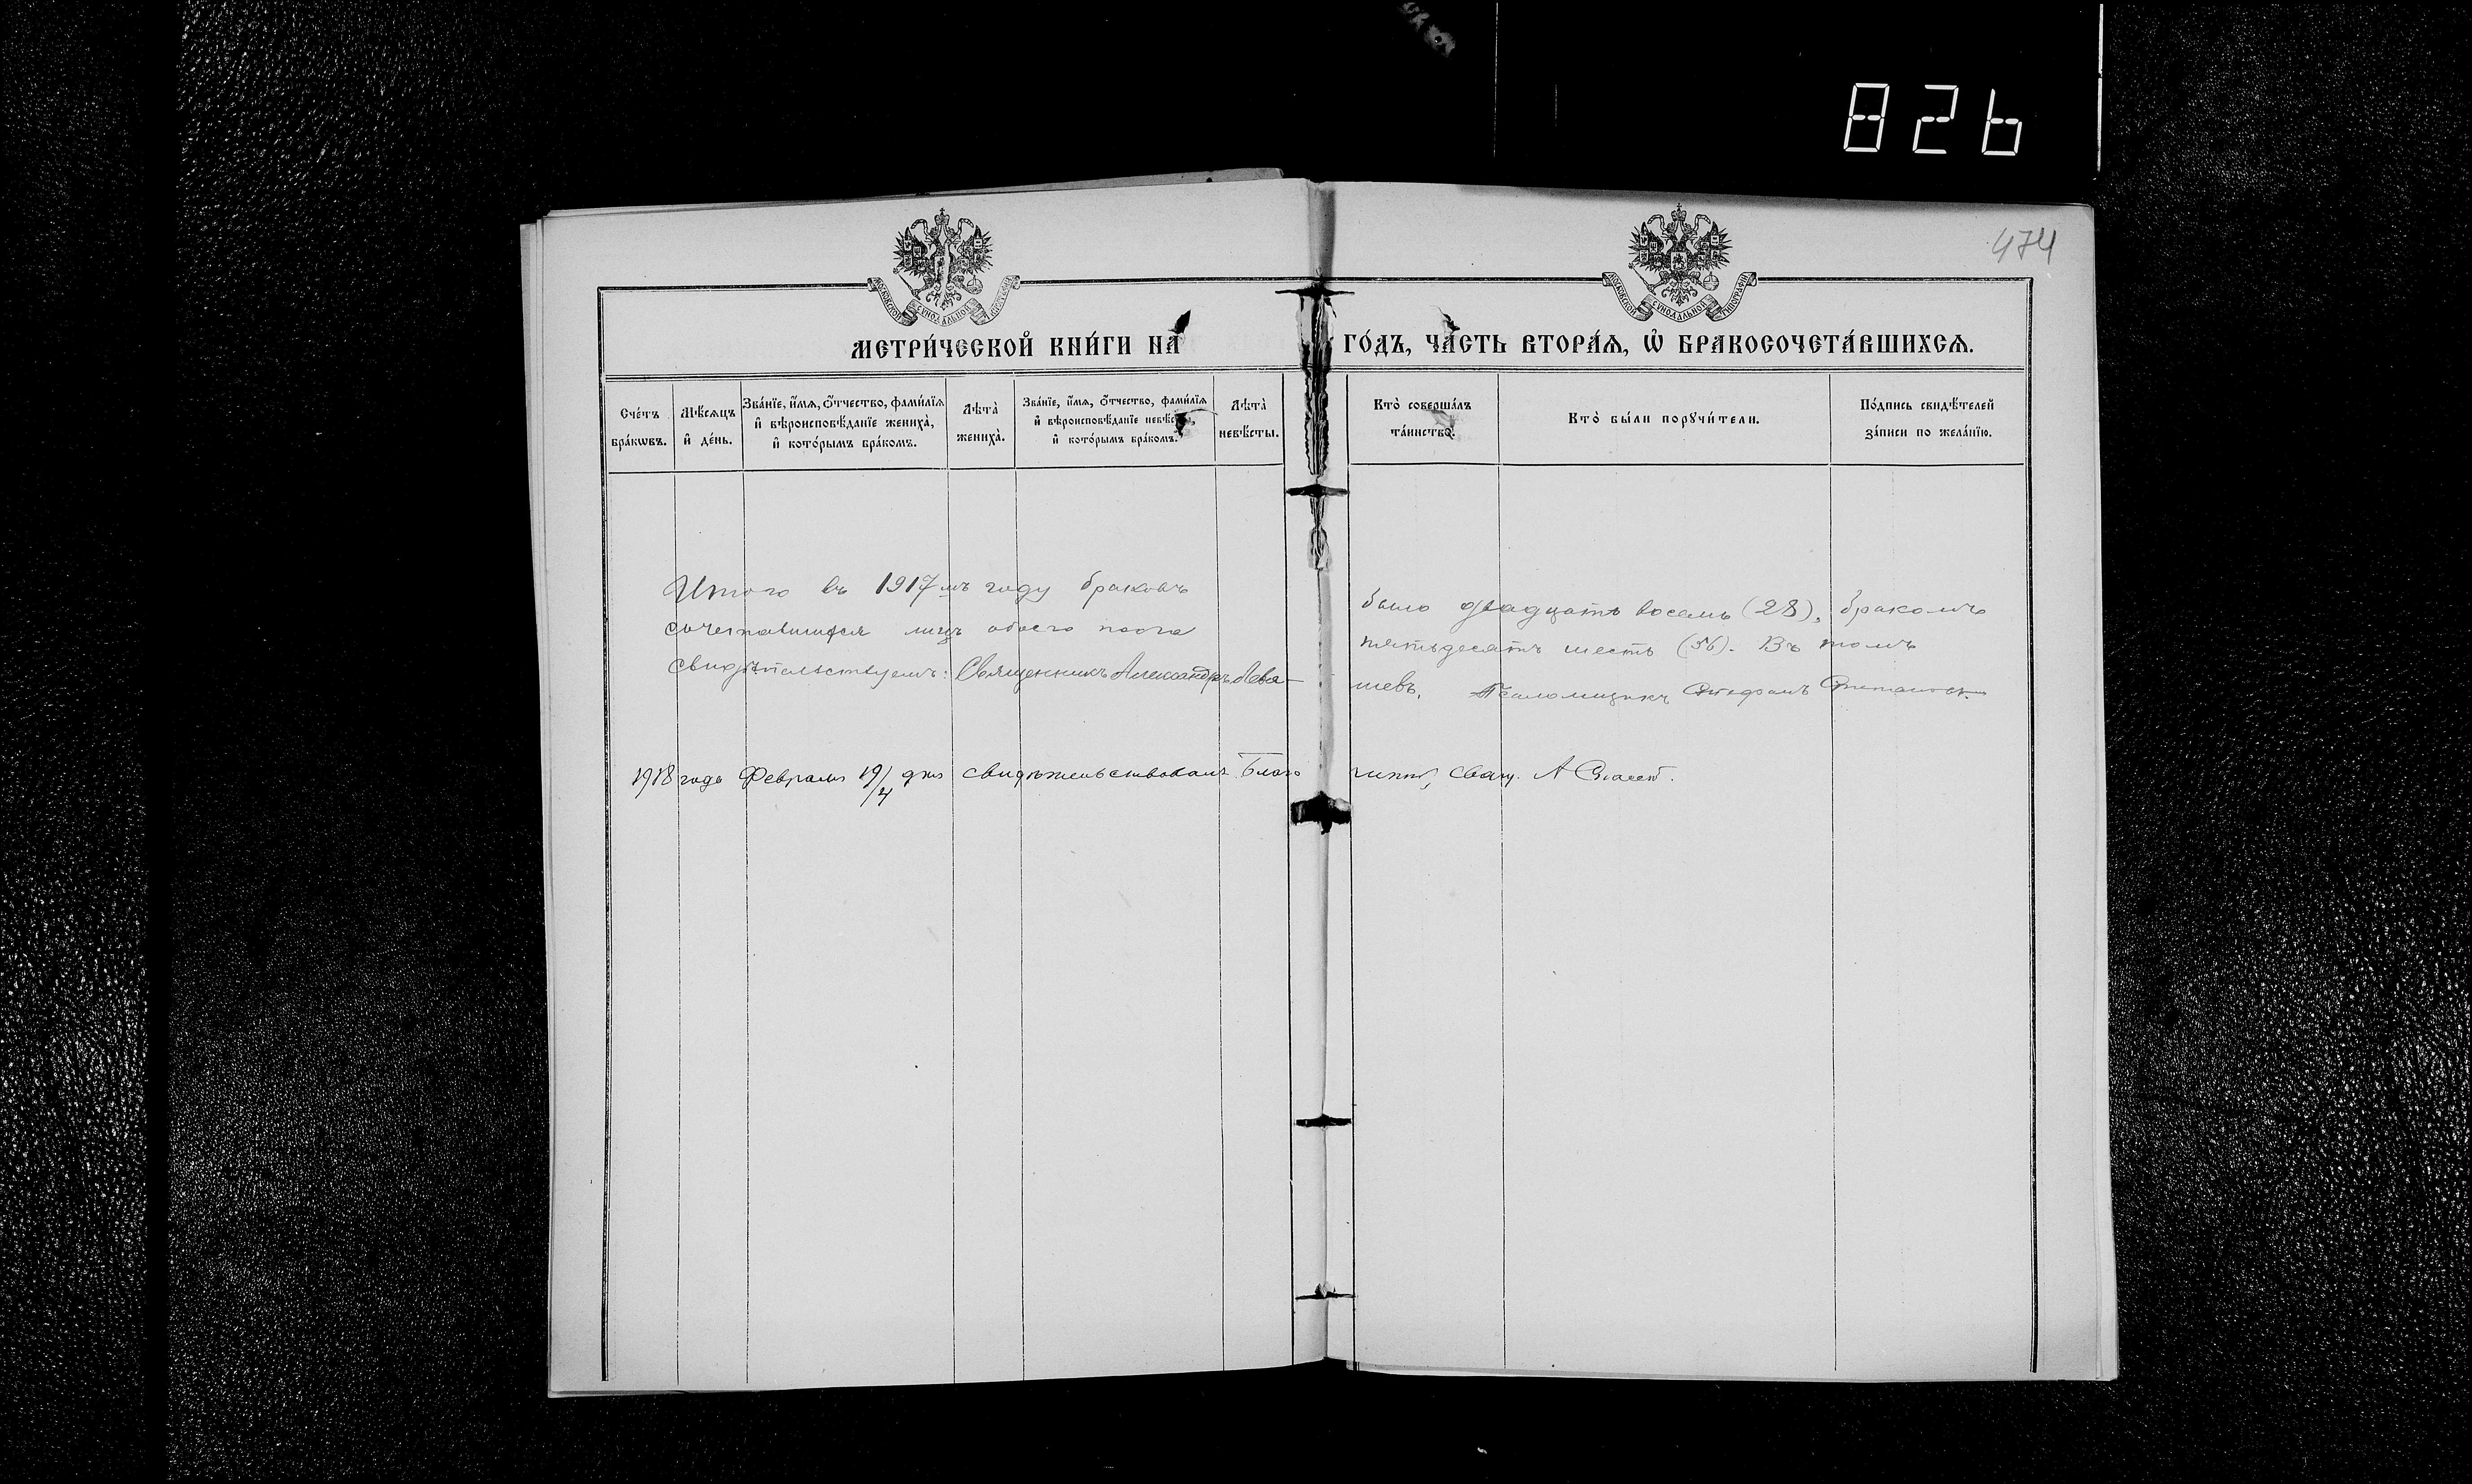 826
474
МОСКОВСКОЙ СѴНОДАЛЬНОЙ ТИПОГРАФІИ
МОСКОВСКОЙ СѴНОДАЛЬНОЙ ТИПОГРАФІИ
МЕТРИ́ЧЕСКОЙ КНИ́ГИ НА̀ ГО́ДЪ, ЧА́СТЬ ВТОРА́Ѧ, Ѽ БРАКОСОЧЕТА́ВШИХСѦ.
Сче́тъ бра́кѡвъ.
Мѣ́сѧцъ и҆ де́нь.
Зва́нїе, и҆́мѧ, ѻ҆́тчество, фами́лїѧ и҆ вѣроисповѣ́данїе жениха̀, и҆ кото́рымъ бра́комъ.
Лѣта̀ жениха̀.
Зва́нїе, и҆́мѧ, ѻ҆́тчество, фами́лїѧ и҆ вѣроисповѣ́данїе невѣ́сты, и҆ кото́рымъ бра́комъ.
Лѣта̀ невѣ́сты.
Кто̀ соверша́лъ та́инство.
Кто̀ бы́ли порꙋчи́тели.
По́дпись свидѣ́телей за́писи по жела́нїю.
Итого въ 1917мъ году браковъ было двадцать восемь (28), бракомъ
сочетавшихся лицъ обоего пола пятьдесятъ шесть (56). Въ томъ
свидѣтельствуемъ: Священникъ Александръ Лева-шевъ. Псаломщикъ Стефанъ
1918 года Февраля 19/4 дня свидѣтельствовалъ Благочинный, Свящ. А